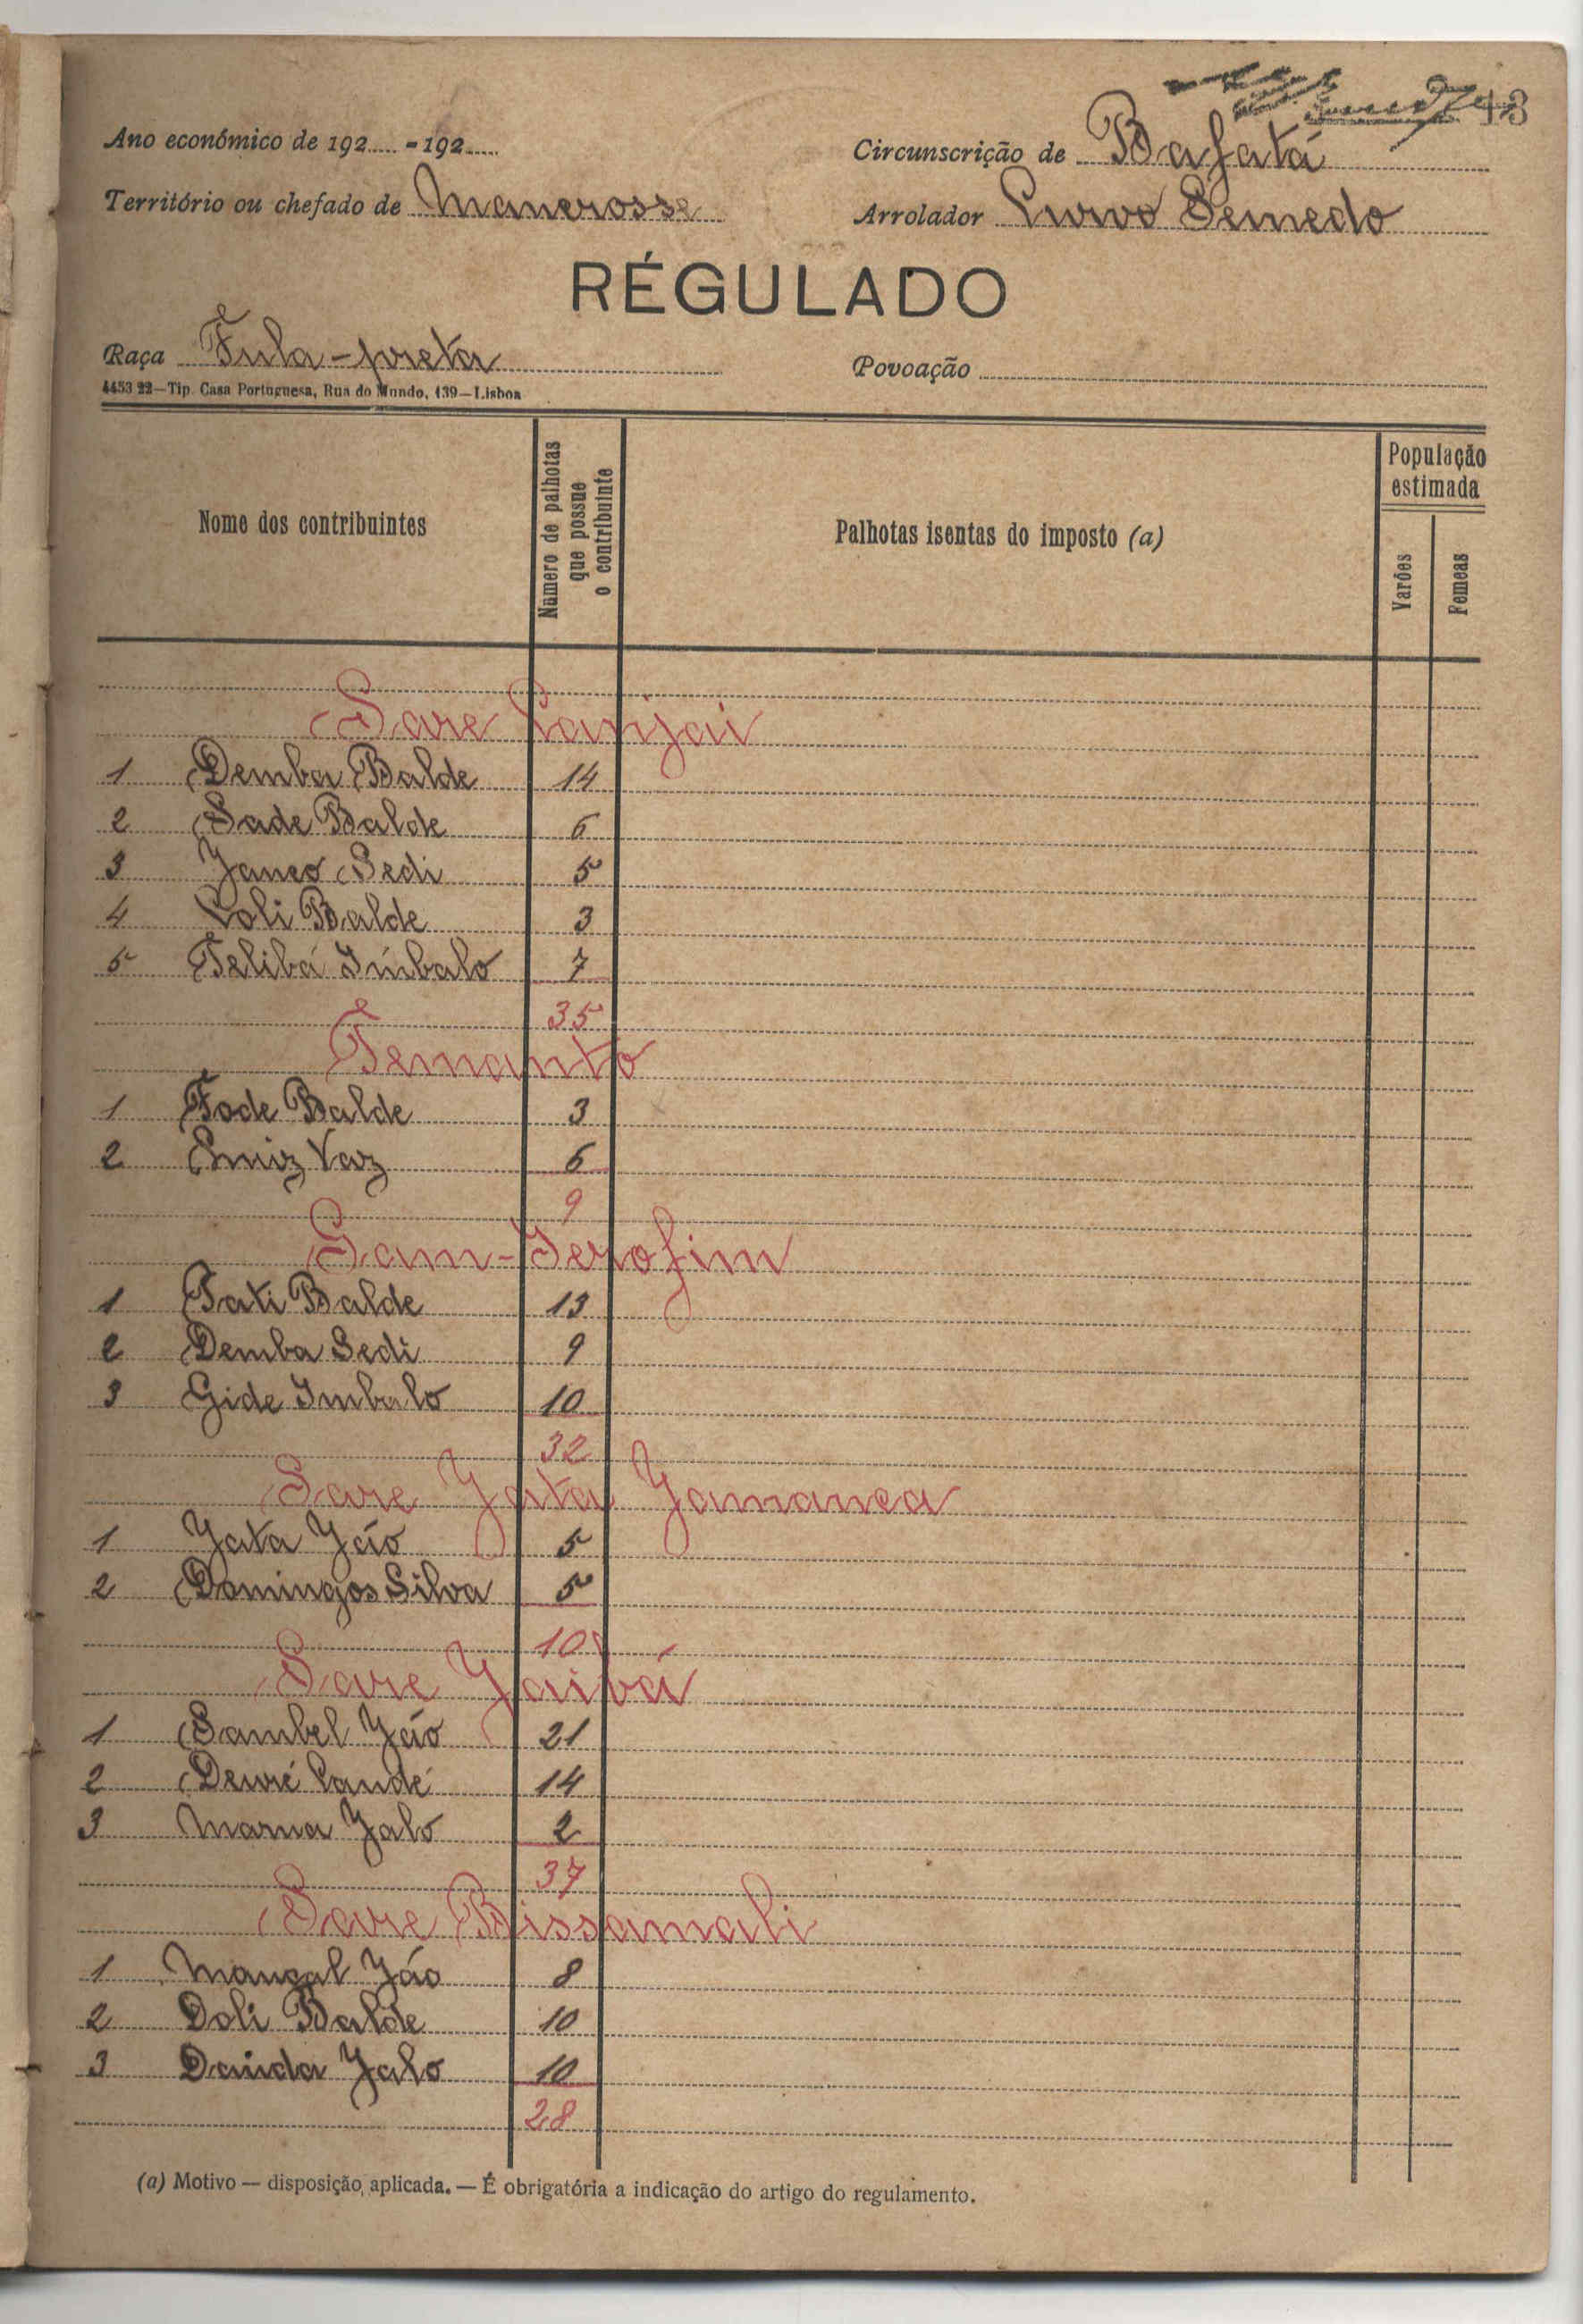 43
Ano económico de 192..... - 192.....
Circunscrição de Bafatá
Território ou chefado de Manerosse
Arrolador Semedo
RÉGULADO
Raça Fula-preta
Povoação
4453 22—Tip. Casa Portuguesa, Rua do Mundo, 139—Lisboa
Nome dos contribuintes
Número de palhotas que possue o contribuinte
Palhotas isentas do imposto (a)
População estimada
Varões
Femeas
Sare Canjai
1 Demba Balde 14
2 Sade Balde 6
3 Janco Sedi 5
4 Coli Balde 3
5 Telibá Imbalo 7
35
Temanto
1 Fode Balde 3
2 Vaz 6
9
Sam-Jerofim
1 Pati Balde 13
2 Demba Sedi 9
3 Gide Imbalo 10
32
Sare Jata Jamanca
1 Jata Jáo 5
2 Domingos Silva 5
10
Sare Jaibá
1 Sambel Jáo 21
2 Candé 14
3 Mama Jalo 2
37
Sare Bissamali
1 Mancal Jáo 8
2 Doli Balde 10
3 Dauda Jalo 10
28
(a) Motivo — disposição aplicada. — É obrigatória a indicação do artigo do regulamento.